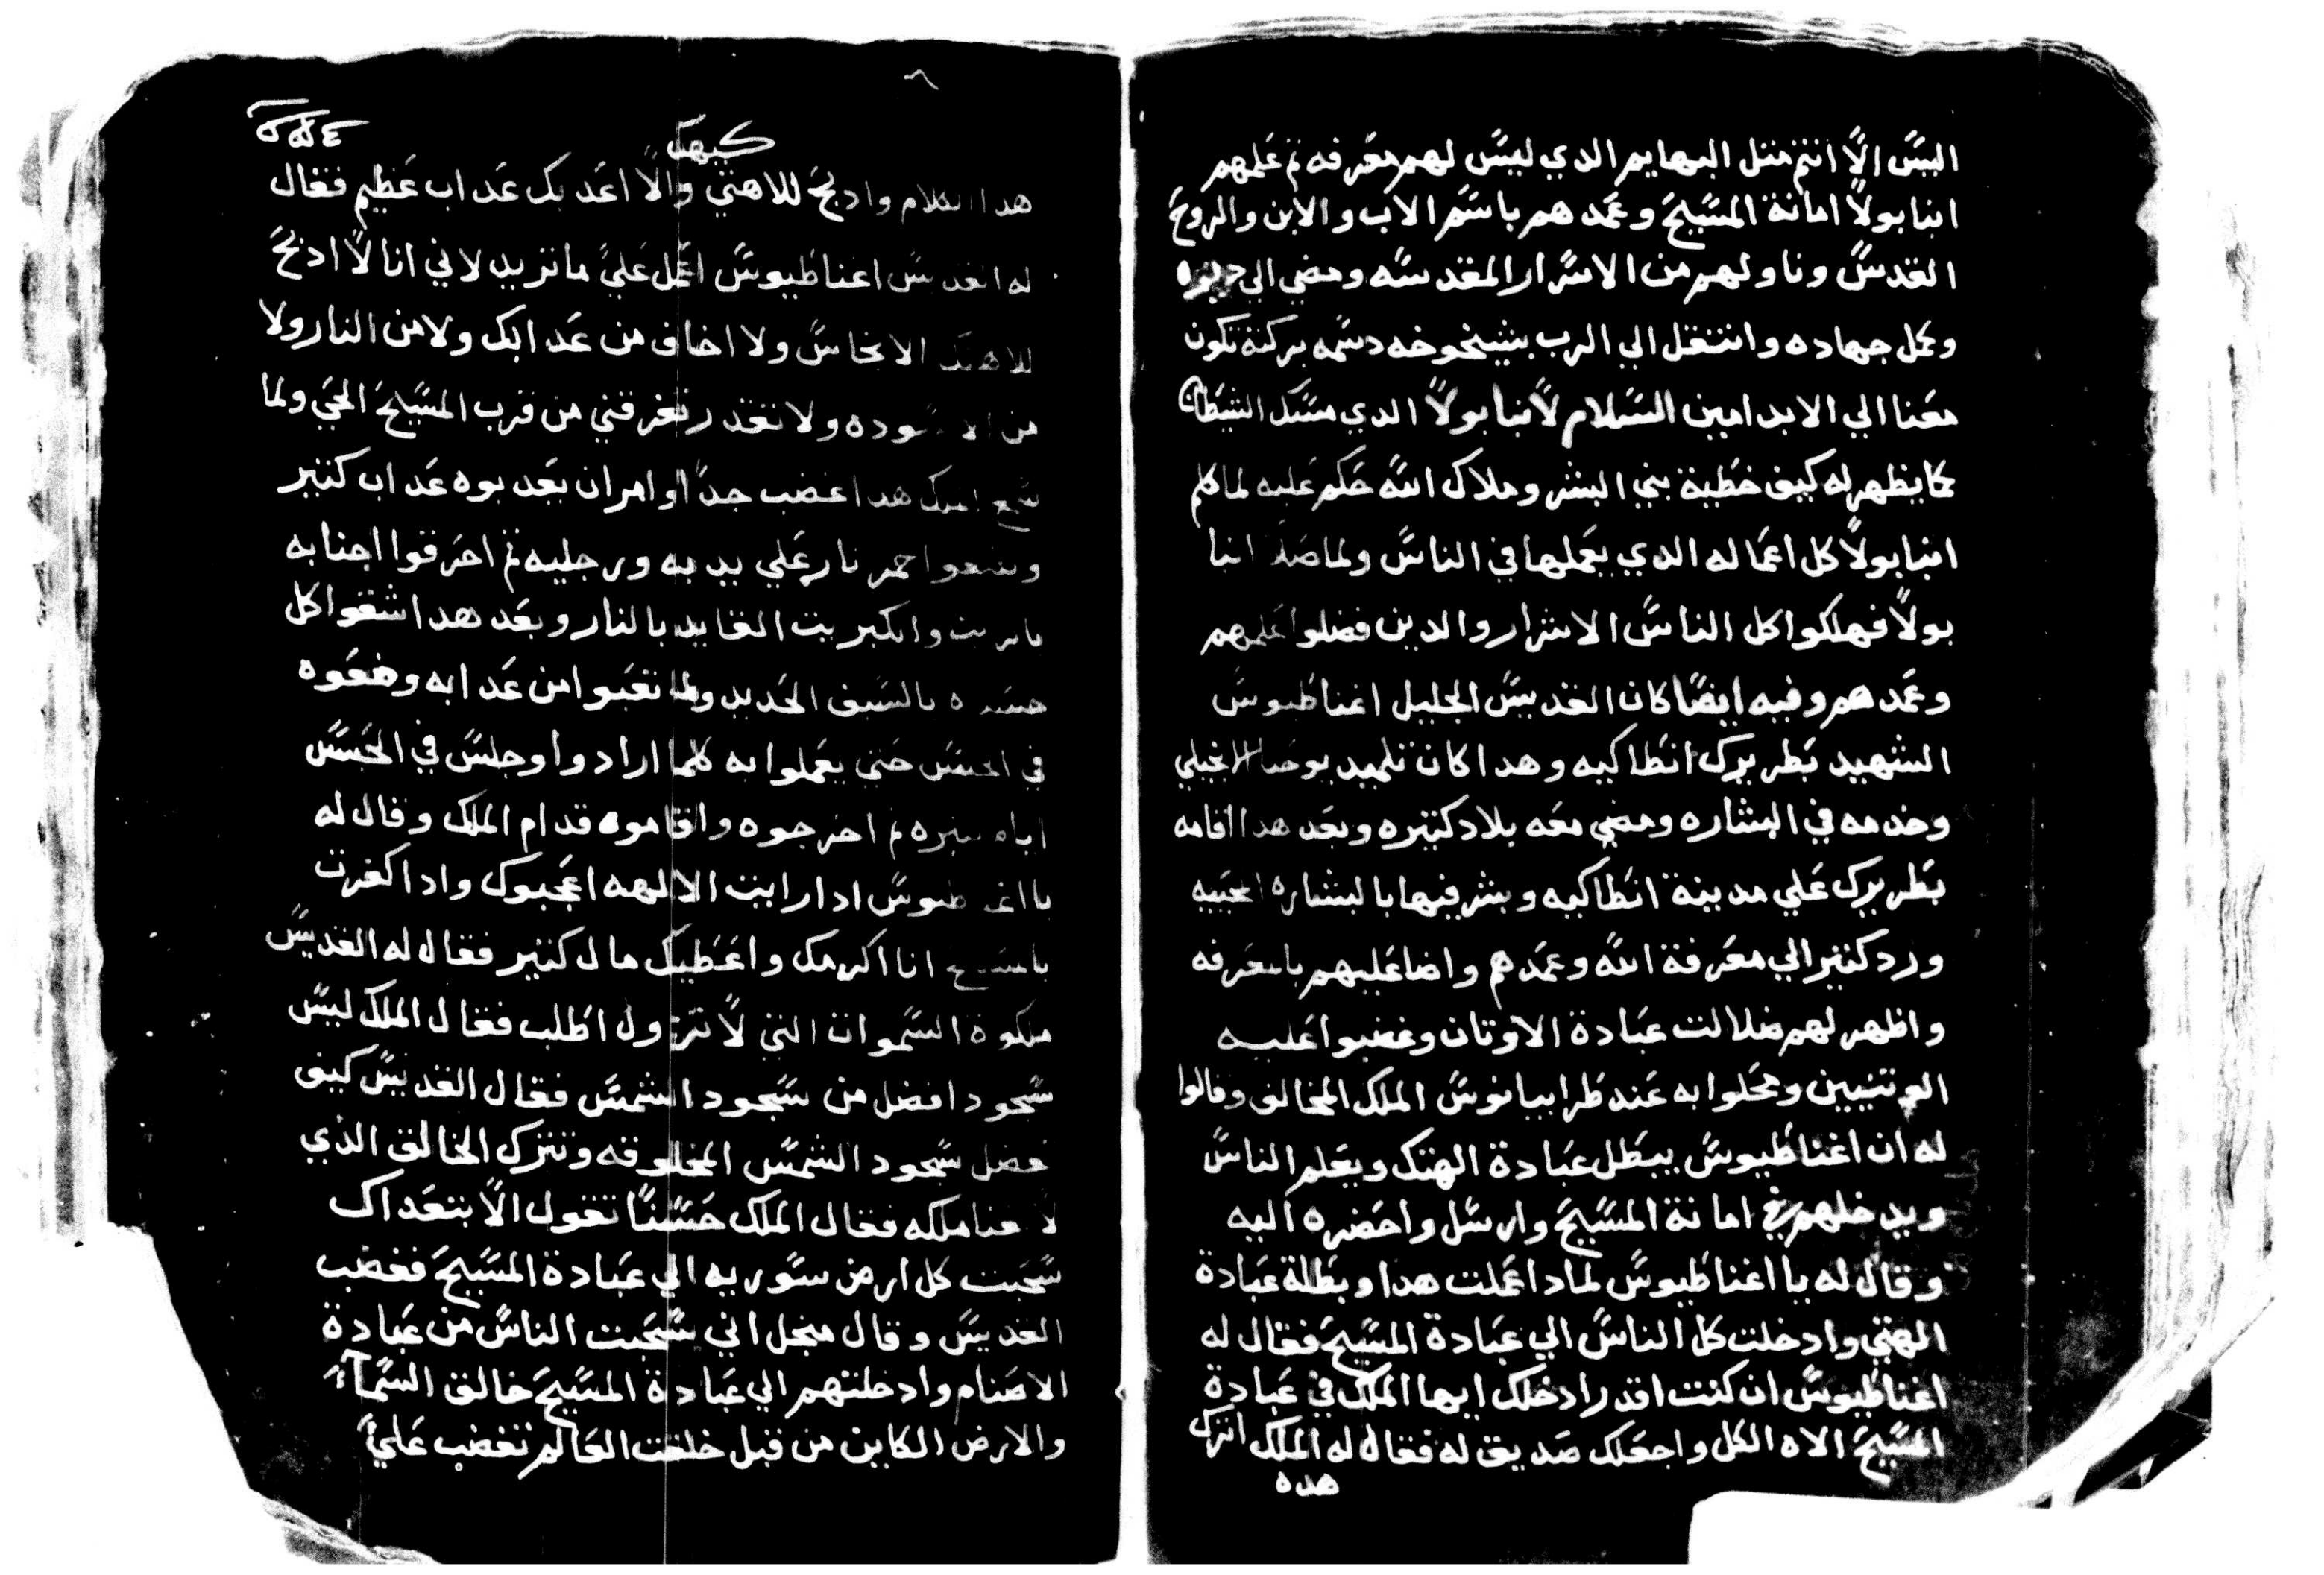 اليسَّ إلاَّ انتم متل البهايم الدي ليسَّ لهم معَرفه تم عَلمهم
انبا بولاً امانة المسَّيحَ وعَمدهم باسَّم الاب والابن والروحَ
القدسَّ وناولهم من الاسَّرار المقدسَّه ومضي الي ديره
وكمل جهاده وانتقل الي الرب بشيخوخه دسَّمه بركته تكون
معَنا الي الابد امين السَّلام لاَنبا بولاً الدي مسَّك الشيَطان
كما يظهر له كيف خطَية بني البشر وملاك اللَّه حَكم عَليه لما كلم
انبا بولاً كل اعَماله الدي يعَملها في الناسَّ ولما صَلا انبا
بولاً فهلكوا كل الناسَّ الاشرار والدين فضلوا عَلمهم
وعَمدهم وفيه ايضًا كان القديسَّ الجليل اغناطَيوسَّ
الشهيد بَطريرك انطَاكيه وهدا كان تلميد يوحَنا الانجيلي
وخدمه في البشاره ومضي معَه بلاد كتيره وبعَد هدا اقامه
بَطريرك عَلي مدينة انطَاكيه وبشر فيها بالبشاره المحَييه
ورد كتير الي معَرفة اللَّه وعَمدهم واضا عَليهم بالمعَرفه
واظهر لهم ضلالت عَبادة الاوتان وغضبوا عَليه
الوتنيين ومحَلوا به عَند طَرابيانوسَّ الملك المخالف وقالوا
له ان اغناطَيوسَّ يبطَل عَبادة الهتك ويعَلم الناسَّ
ويدخلهم في امانة المسَّيحَ وارسَّل واحَضره اليه
وقال له يا اغناطَيوسَّ لمادا عَملت هدا وبطَلة عَبادة
الهتي وادخلت كل الناسَّ الي عَبادة المسَّيحَ فقال له
اغناطَيوسَّ ان كنت اقدر ادخلك ايها الملك في عَبادة
المسَّيحَ الاه الكل واجعَلك صَديق له فقال له الملك اترك
هده
كيهك
هدا الكلام وادبحَ للاهتي والاَّ اعَدبك عَداب عَظيم فقال
له القديسَّ اغناطَيوسَّ اعَمل عَليَّ ما تريد لاني انا لاَّ ادبحَ
للاهتك الانجاسَّ ولا اخاف من عَدابك ولا من النار ولا
من الاسَّوده ولا تقدر تفرقني من قرب المسَّيحَ الحَي ولما
سَّمع الملك هدا غضب جدًا وامر ان يعَدبوه عَداب كتير
وضعوا جمر نار عَلي يديه ورجليه تم احَرقوا اجنابه
بالزيت والكبريت القايد بالنار وبعَد هدا شقوا كل
جسَّده بالسَّيف الحَديد ولما تعَبوا من عَدابه وضعَوه
في الحبسَّ حَتي يعَملوا به كلما ارادوا وجلسَّ في الحَبسَّ
ايام كتيره تم اخرجوه واقاموه قدام الملك وقال له
يا اغناطيوسَّ ادا رايت الالهه اعَجبوك وادا كفرت
بالمسَّيح انا اكرمك واعَطَيك مال كتير فقال له القديسَّ
ملكوة السَّموات التي لاَّ تزول اطَلب فقال الملك ليسَّ
سَّجود افضل من سَّجود الشمسَّ فقال القديسَّ كيف
تفضل سَّجود الشمسَّ المخلوقه وتترك الخالق الدي
لاَ فنا ملكه فقال الملك حَسَّنًا تقول الاَّ بتعَداك
سَّحَبت كل ارض سَّوريه الي عَبادة المسَّيحَ فغضب
القديسَّ وقال منجل اني سَّحَبت الناسَّ من عَبادة
الاصَنام وادخلتهم الي عَبادة المسَّيحَ خالق السَّمآءَ
والارض الكاين من قبل خلقت العَالم تغضب عَليَّ